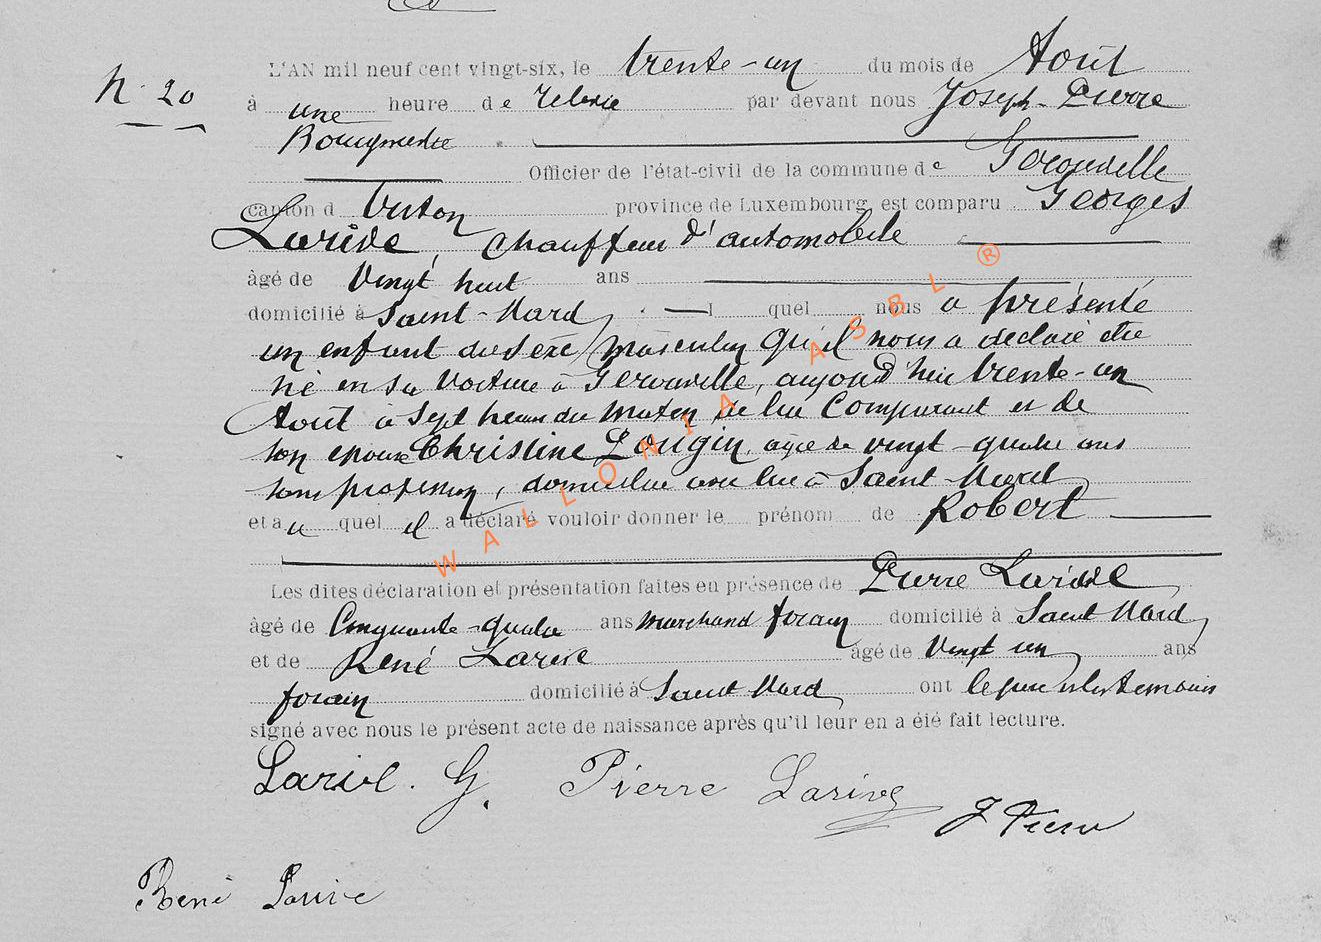 N. 20
L'AN mil neuf cent vingt-six, le trente-un du mois de Août
à une heure de relevée par devant nous Joseph Pierre
Officier de l'état-civil de la commune de Gérouville
canton d Virton province de Luxembourg, est comparu Georges
Larive, chauffeur d'automobile
âgé de vingt huit ans
domicilié à Saint-Mard, l quel nous a présenté
un enfant du sexe masculin qu'il nous a déclaré être
né en sa voiture à Gérouville, aujourd'hui trente-un
Août à sept heures du matin de lui comparant et de
son épouse Christine Zougin, âgée de vingt-quatre ans
sans profession, domiciliée avec lui à Saint-Mard
et au quel il a déclaré vouloir donner le prénom de Robert
Les dites déclaration et présentation faites en présence de Pierre Larive
âgé de Cinquante-quatre ans marchand forain domicilié à Saint Mard,
et de René Larive âgé de vingt un ans
forain domicilié à Saint Mard, ont le père et les témoins
signé avec nous le présent acte de naissance après qu'il leur en a été fait lecture.
Larive. G. Pierre Larive
J Pierre
René Larive
WALLONIA ASBL ®